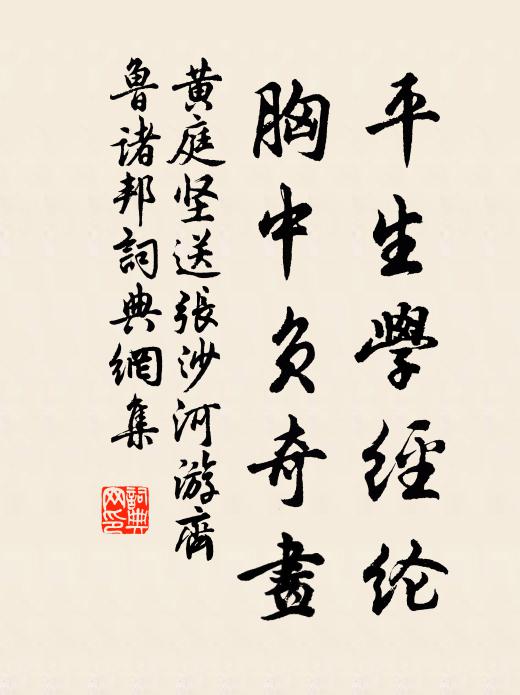 平生學經纶
胸中负奇畫
黄庭坚送張沙河游齊
魯诸邦詞典網集
詞典网印